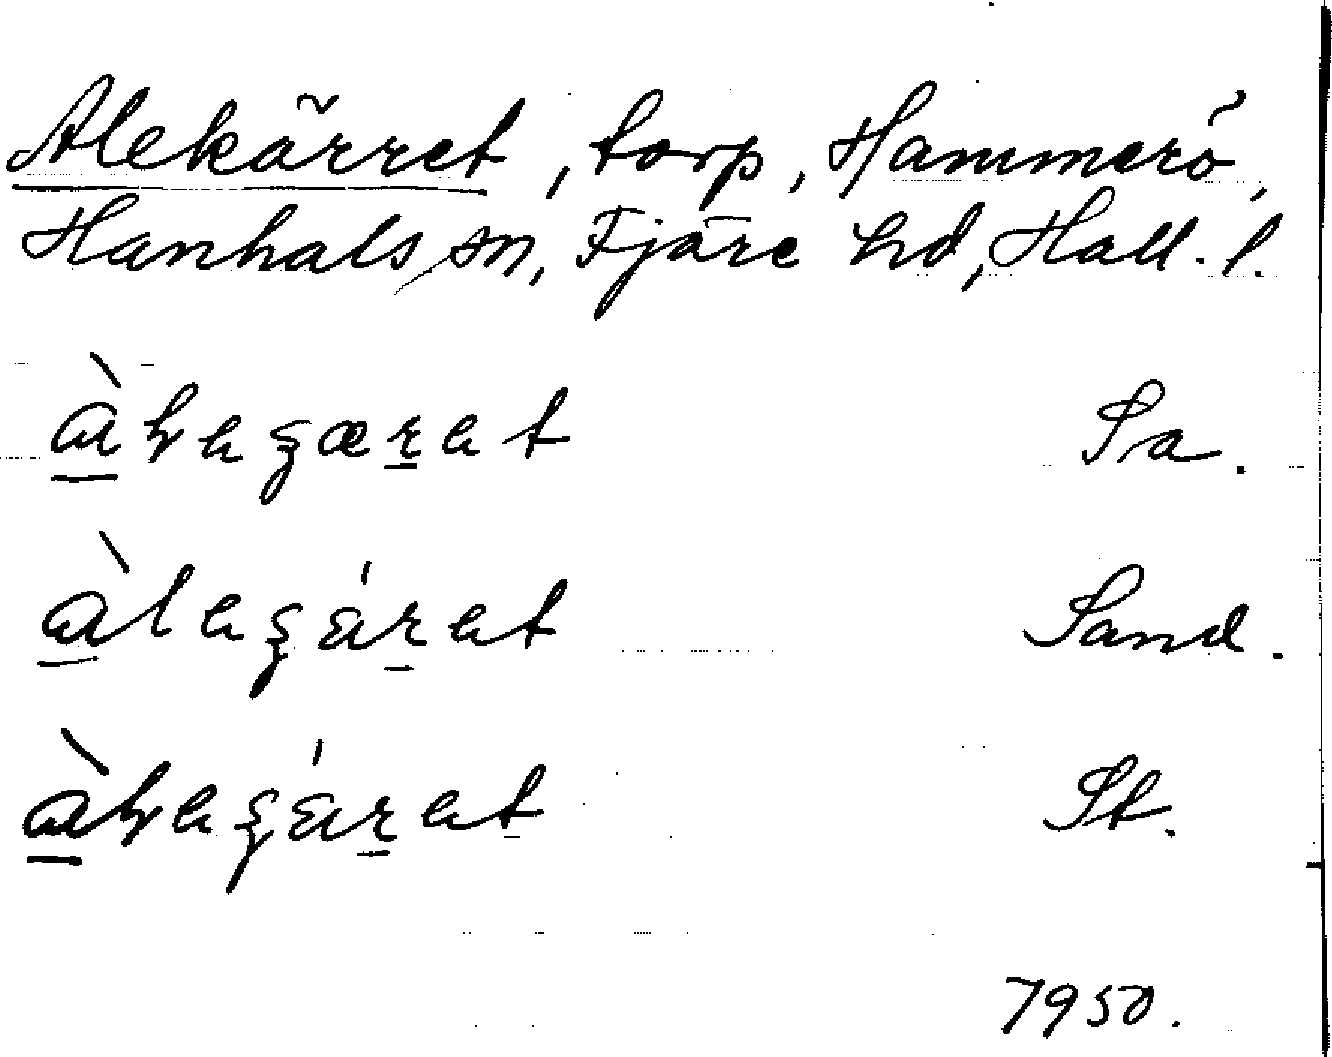 Alekärret, torp, Hammerö,
Hanhals sn, Fjäre hd, Hall. l.
Sa.
Sand.
St.
7950.